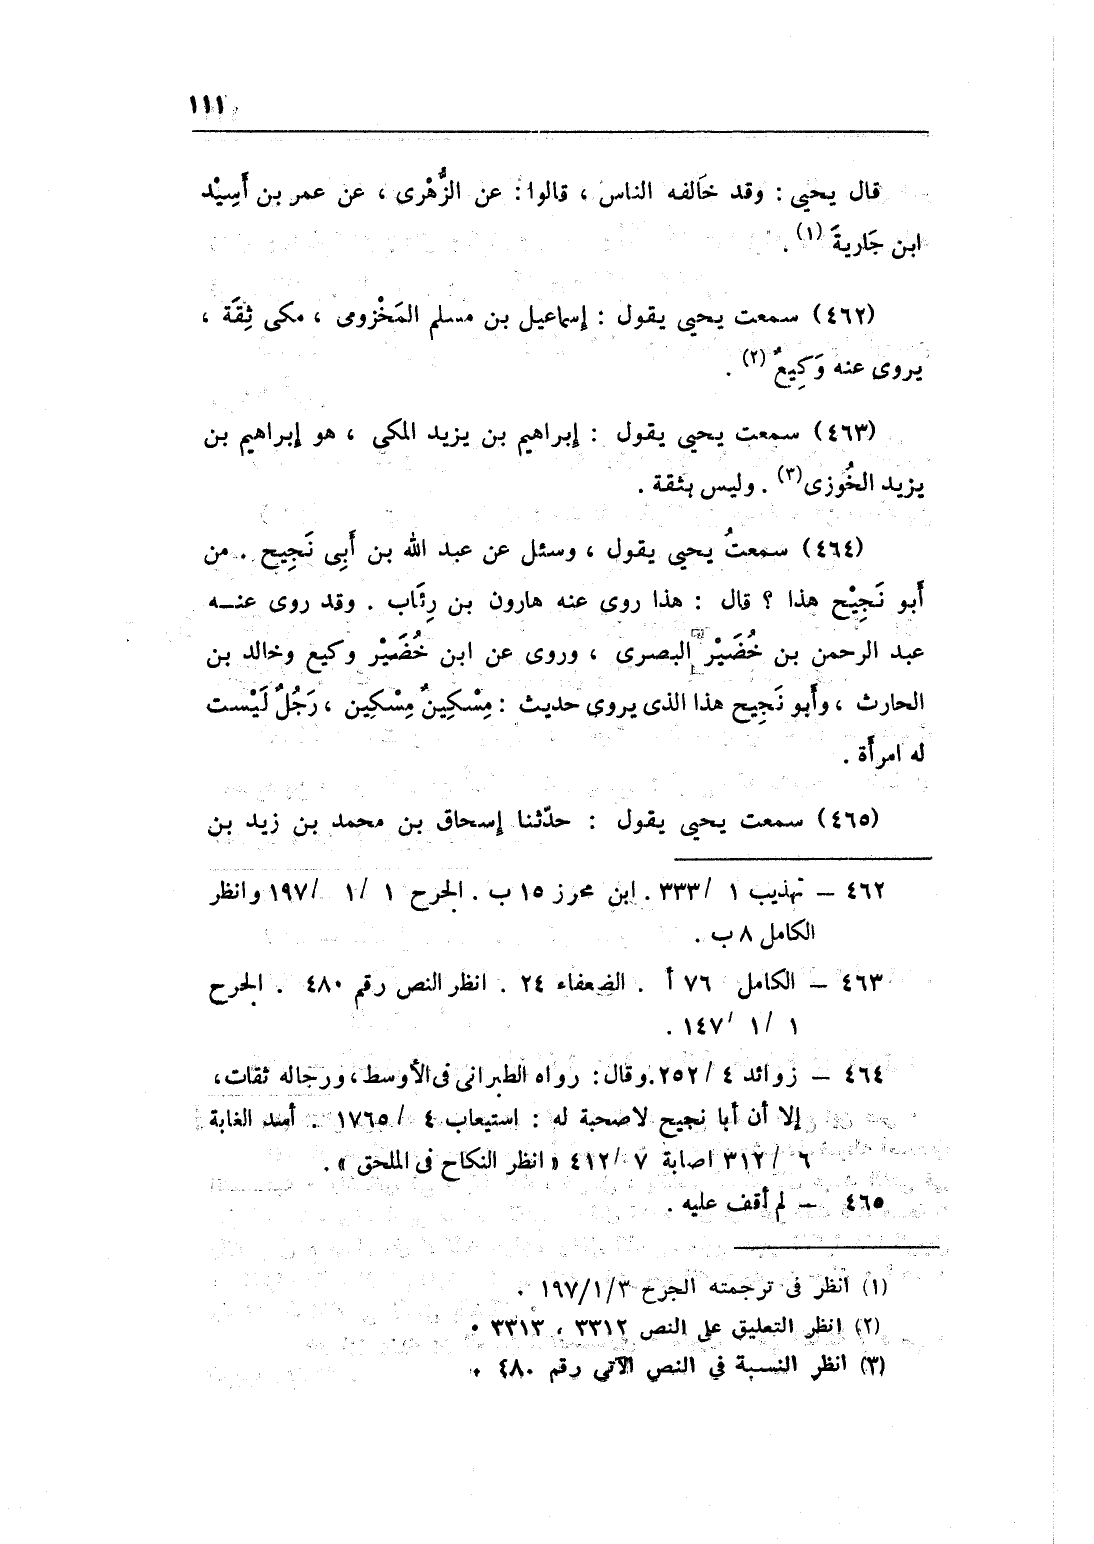 ١١١
قال يحيى : وقد خَالفه الناس ، قالوا : عن الزُّهْرى ، عن عمر بن أَسِيْد
ابن جَاريةَ (١) .
(٤٦٢) سمعت يحيى يقول : إسماعيل بن مسلم المَخْزومى ، مكى ثِقَة ،
يروى عنه وَكِيعٌ (٢) .
(٤٦٣) سمعت يحيى يقول : إبراهيم بن يزيد المكى ، هو إبراهيم بن
يزيد الخُوزى (٣) . وليس بثقة .
(٤٦٤) سمعتُ يحيى يقول ، وسئل عن عبد الله بن أَبِى نَجِيح . من
أَبو نَجِيْح هذا ؟ قال : هذا روى عنه هارون بن رِئَاب . وقد روى عنـه
عبد الرحمن بن خُضَيْر البصرى ، وروى عن ابن خُضَيْر وكيع وخالد بن
الحارث ، وأَبو نَجِيح هذا الذى يروى حديث : مِسْكِينٌ مِسْكِين ، رَجُلٌ لَيْست
له امرأَة .
(٤٦٥) سمعت يحيى يقول : حدّثنا إسحاق بن محمد بن زيد بن
٤٦٢ – تهذيب ١ / ٣٣٣ . ابن محرز ١٥ ب . الجرح ١ / ١ / ١٩٧ وانظر
الكامل ٨ ب .
٤٦٣ – الكامل ٧٦ أ . الضعفاء ٢٤ . انظر النص رقم ٤٨٠ . الجرح
١ / ١ / ١٤٧ .
٤٦٤ – زوائد ٤ / ٢٥٢ . وقال : رواه الطبرانى فى الأوسط ، ورجاله ثقات ،
إلا أن أبا نجيح لا صحبة له : استيعاب ٤ / ١٧٦٥ . أسد الغابة
٦ / ٣١٢ اصابة ٧ / ٤١٢ « انظر النكاح فى الملحق » .
٤٦٥ – لم أقف عليه .
(١) انظر فى ترجمته الجرح ٣/١/١٩٧ .
(٢) انظر التعليق على النص ٣٣١٢ ، ٣٣١٣ .
(٣) انظر النسبة في النص الآتى رقم ٤٨٠ .